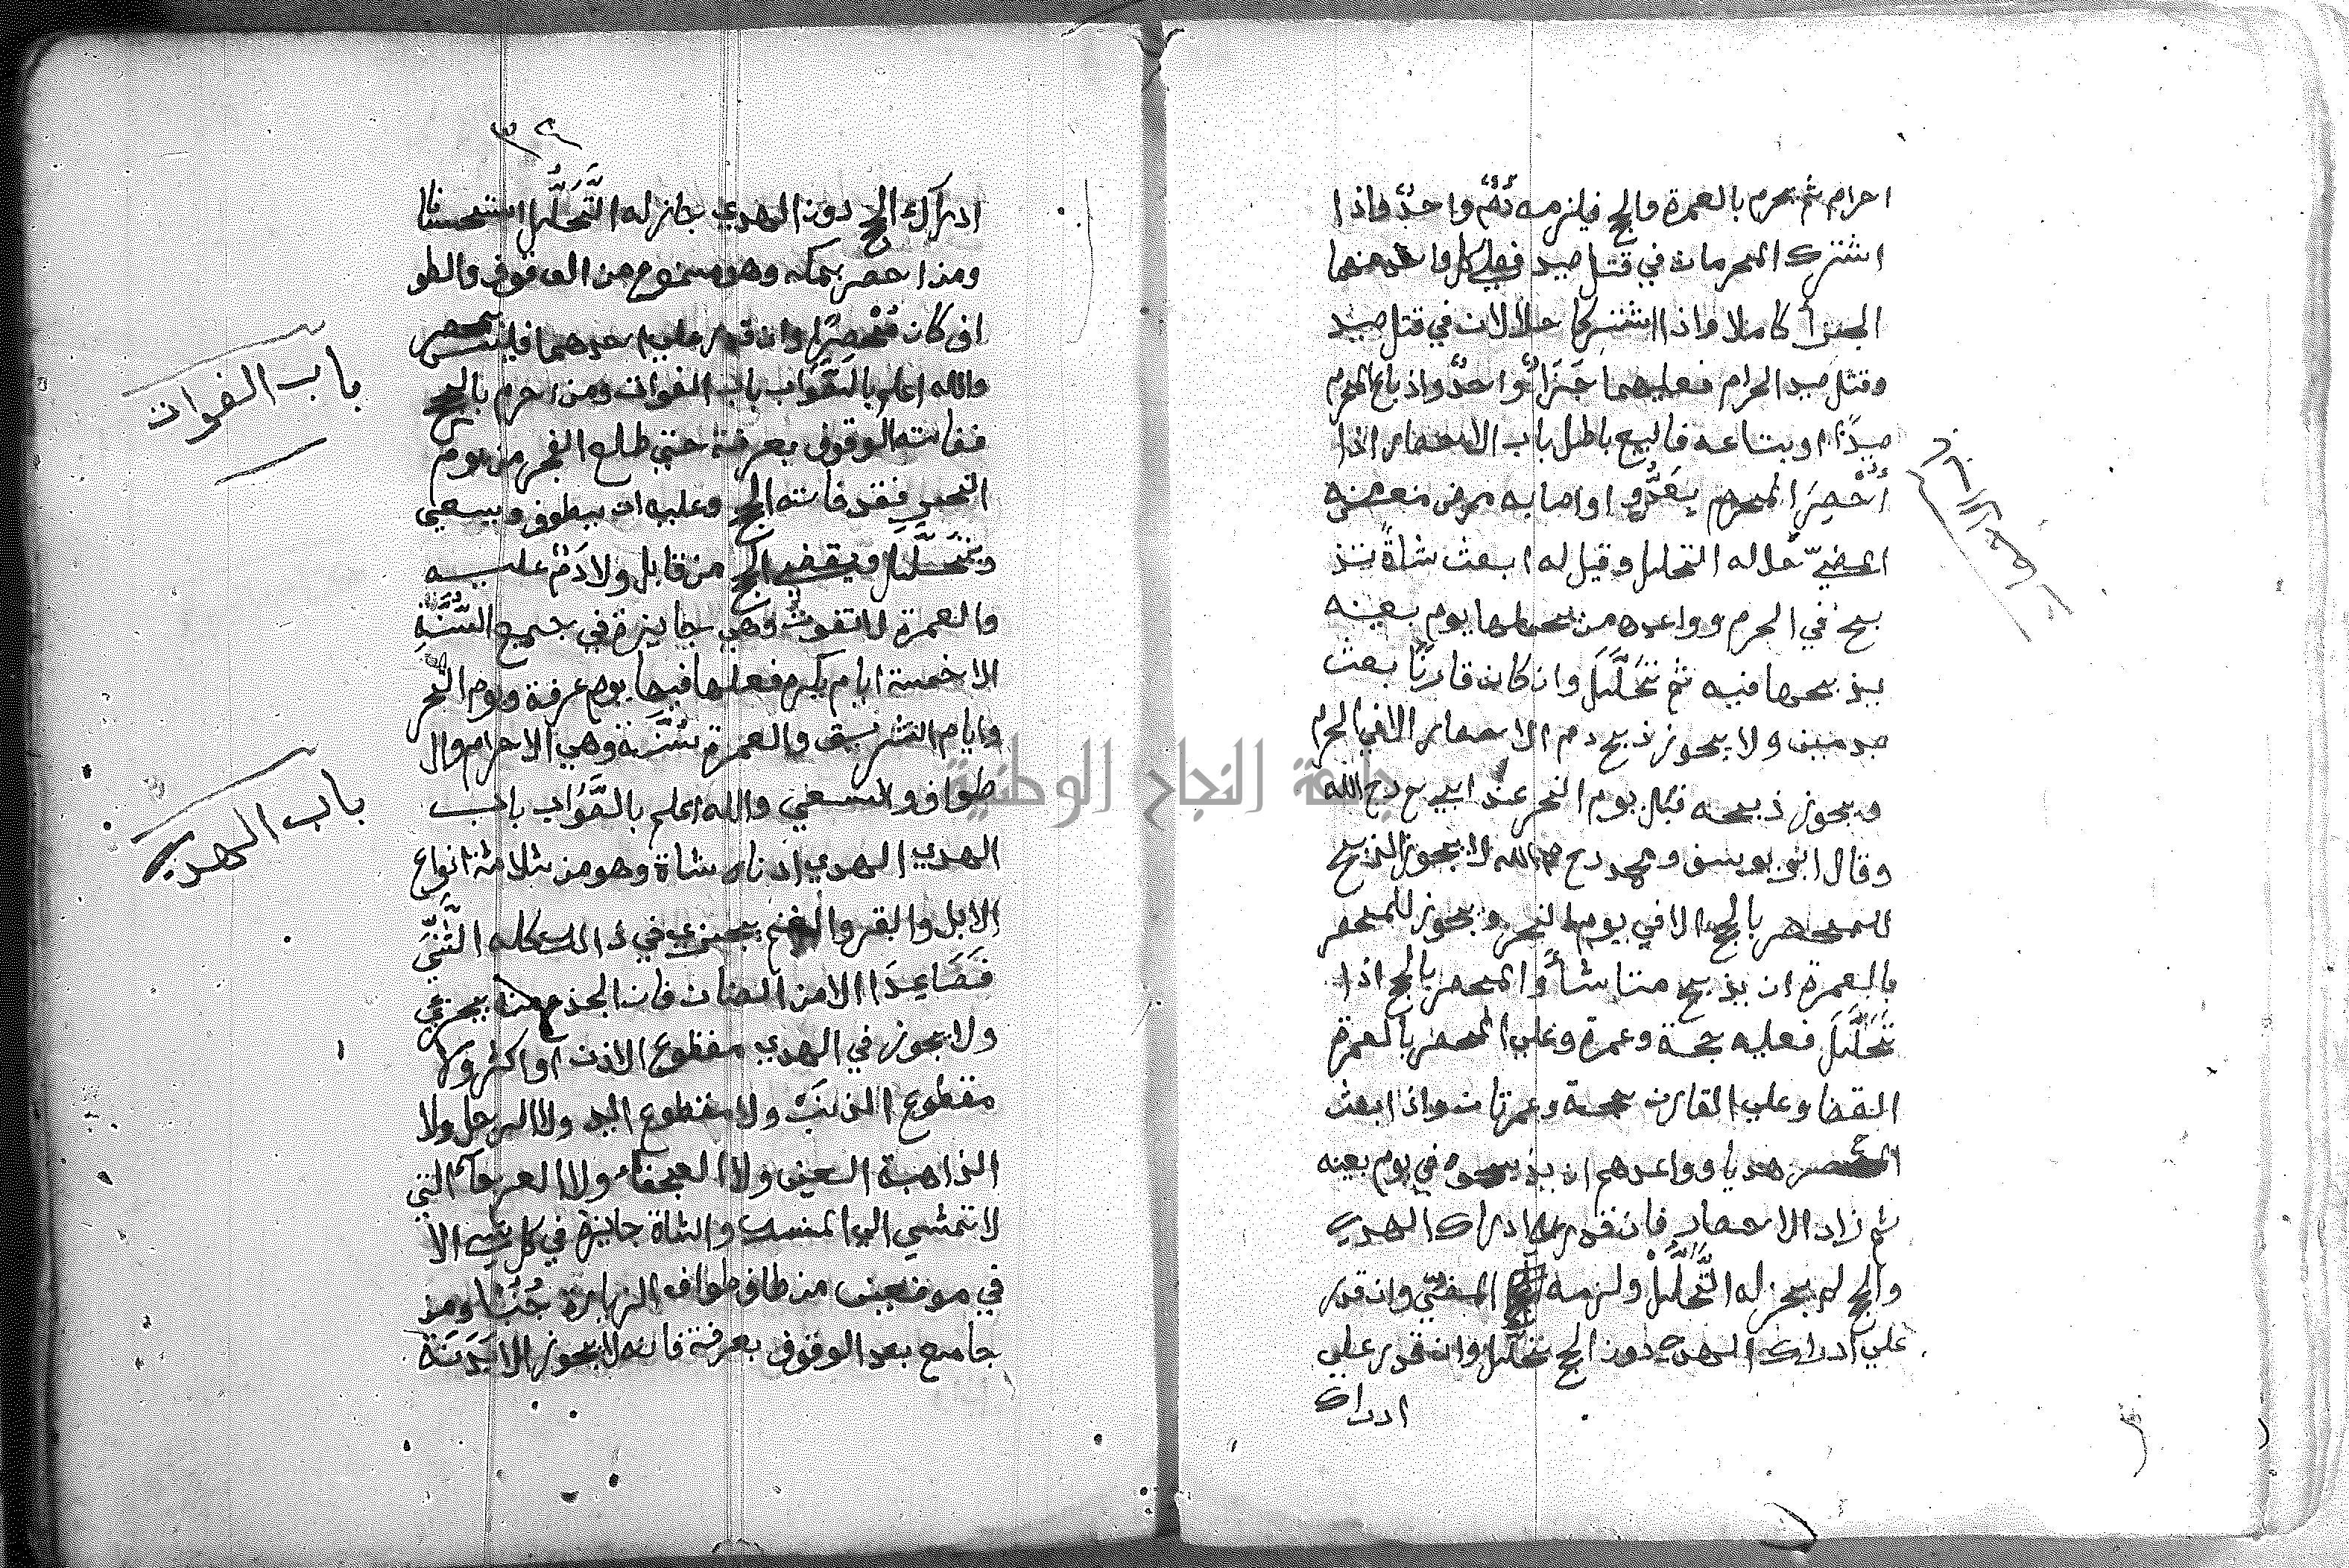 احرام ثم يحرم بالعمرة والحج فيلزمه دَمٌ واحدٌ فاذا
اشترك المحرمان في قتل صيد فعلي كل واحد منهما
الجزأ كاملا واذا اشتركا حلالان في قتل صيد
وقتل صيد الحرام فعليهما جَزَاءٌ واحدٌ واذ باع المحرم
صيدًا او بتاعه فالبيع باطل باب الاحصار اذا
أُحْصِرَ المحرم بعَدُوٍ او اصابه مرض منعه منه
المضيّ حل له التحليل وقيل له ابعث شاةً تذ
بح في الحرم وواعده من يحملها يوم بعينه
يذبحها فيه ثم تَحَلَّلَ وان كان قارنًا بعث
بدمين ولا يجوز ذبح دم الاحصار الا في الحرم
ويجوز ذبحه قبل يوم النحر عند ابي ح رح الله
وقال ابو يوسف ومحمد رح الله لا يجوز الذبح
للمحصر بالحج الا في يوم النحر ويجوز للمحصر
بالعمرة ان يذبح متا شأ والمحصر بالحج اذا
تَحَلَّلَ فعليه حجة وعمرة وعلي المحصر بالعمرة
القضا وعلي القارن حجة وعمرتان واذا ابعث
المحصر هديا وواعدهم ان يذبحوه في يوم بعينه
ثم زاد الاحصار فان قدر علي ادراك الهدي
والحج لم يجز له التَّحَلُّلْ ولزمه المضيّ وان قدر
علي ادراك الهدي دون الحج تحلّل وان قدر علي
ادراك
باب الاحصار
٣٢
ادراك الحج دون الهدي جاز له التَّحَلُّل استحسانا
ومن احصر بمكه وهو ممنوع من الوقوف والطو
اف كان مُحْصَرًا وان قدر علي احدهما فليس بمحصر
والله اعلم بالصَّوَاب باب الفوات ومن احرم بالحج
ففاته الوقوف بعرفة حتي طلع الفجر من يوم
النحر فقد فاته الحج وعليه ان يطوف ويسعي
ويتَحَلَّل ويقضي الحج من قابل ولا دَمْ عليه
والعمرة لا تفوتُ وهي جايزة في جميع السَّنَةِ
الا خمسة ايام يكره فعلها فيها يوم عرفة ويوم النحر
وايام التشريق والعمرة سُنَّة وهي الاحرام وال
طواف والسعي والله اعلم بالصَّوَاب باب
الهدي الهدي ادناه شاة وهو من ثلاثة انواع
الابل والبقر والغنم يجزي في ذالك كله الثَّنِيّ
فَصَاعِدَا الا من الضان فان الجذع منه يجزي
ولا يجوز في الهدي مقطوع الاذن او اكثر ولا
مقطوع الذنَبَ ولا مقطوع اليد ولا الرجل ولا
الذاهبة العين ولا العجفآء ولا العرجآ التي
لا تمشي الي المنسك والشاة جايزة في كل شي الا
في موضعين من طاف طواف الزيارة جُنُبًا ومن
جامع بعد الوقوف بعرفة فانه لا يجوز الا بَدَنَة
باب الفوات
باب الهدي
جامعة النجاح الوطنية